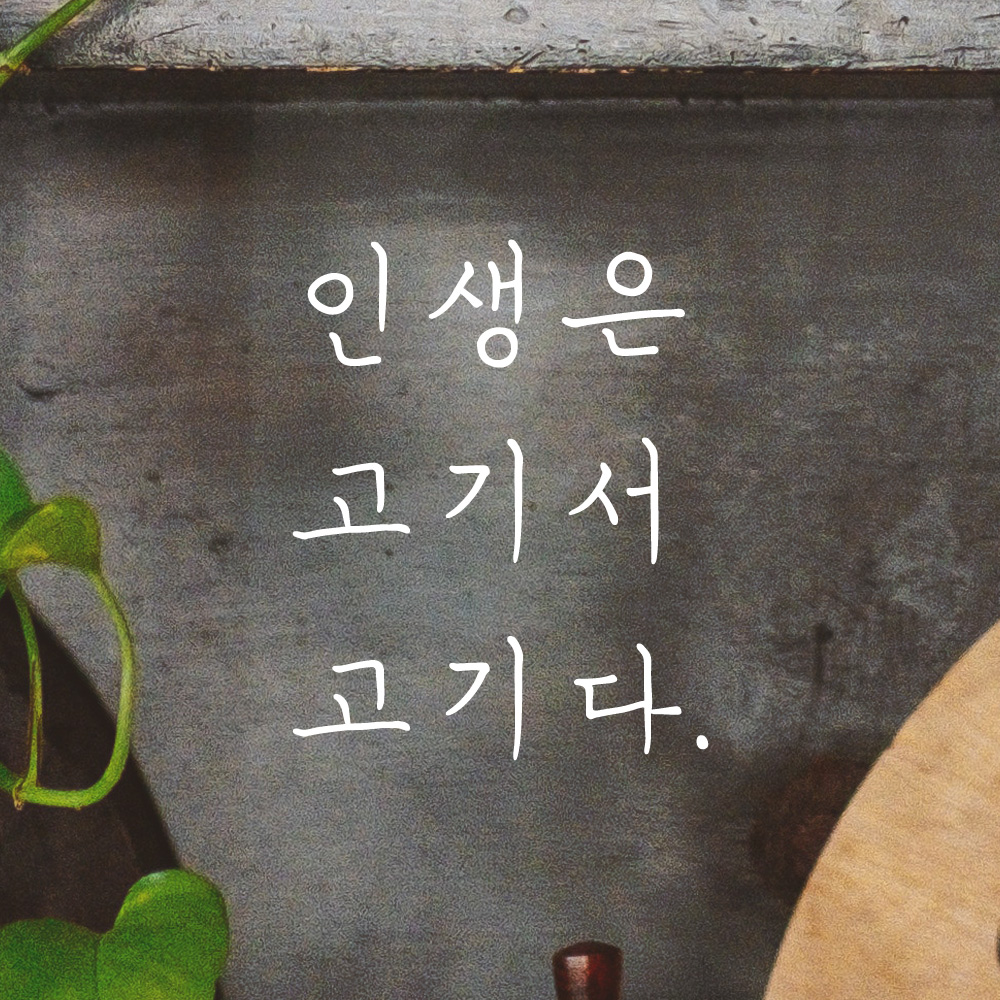 인생은
고기서
고기다.